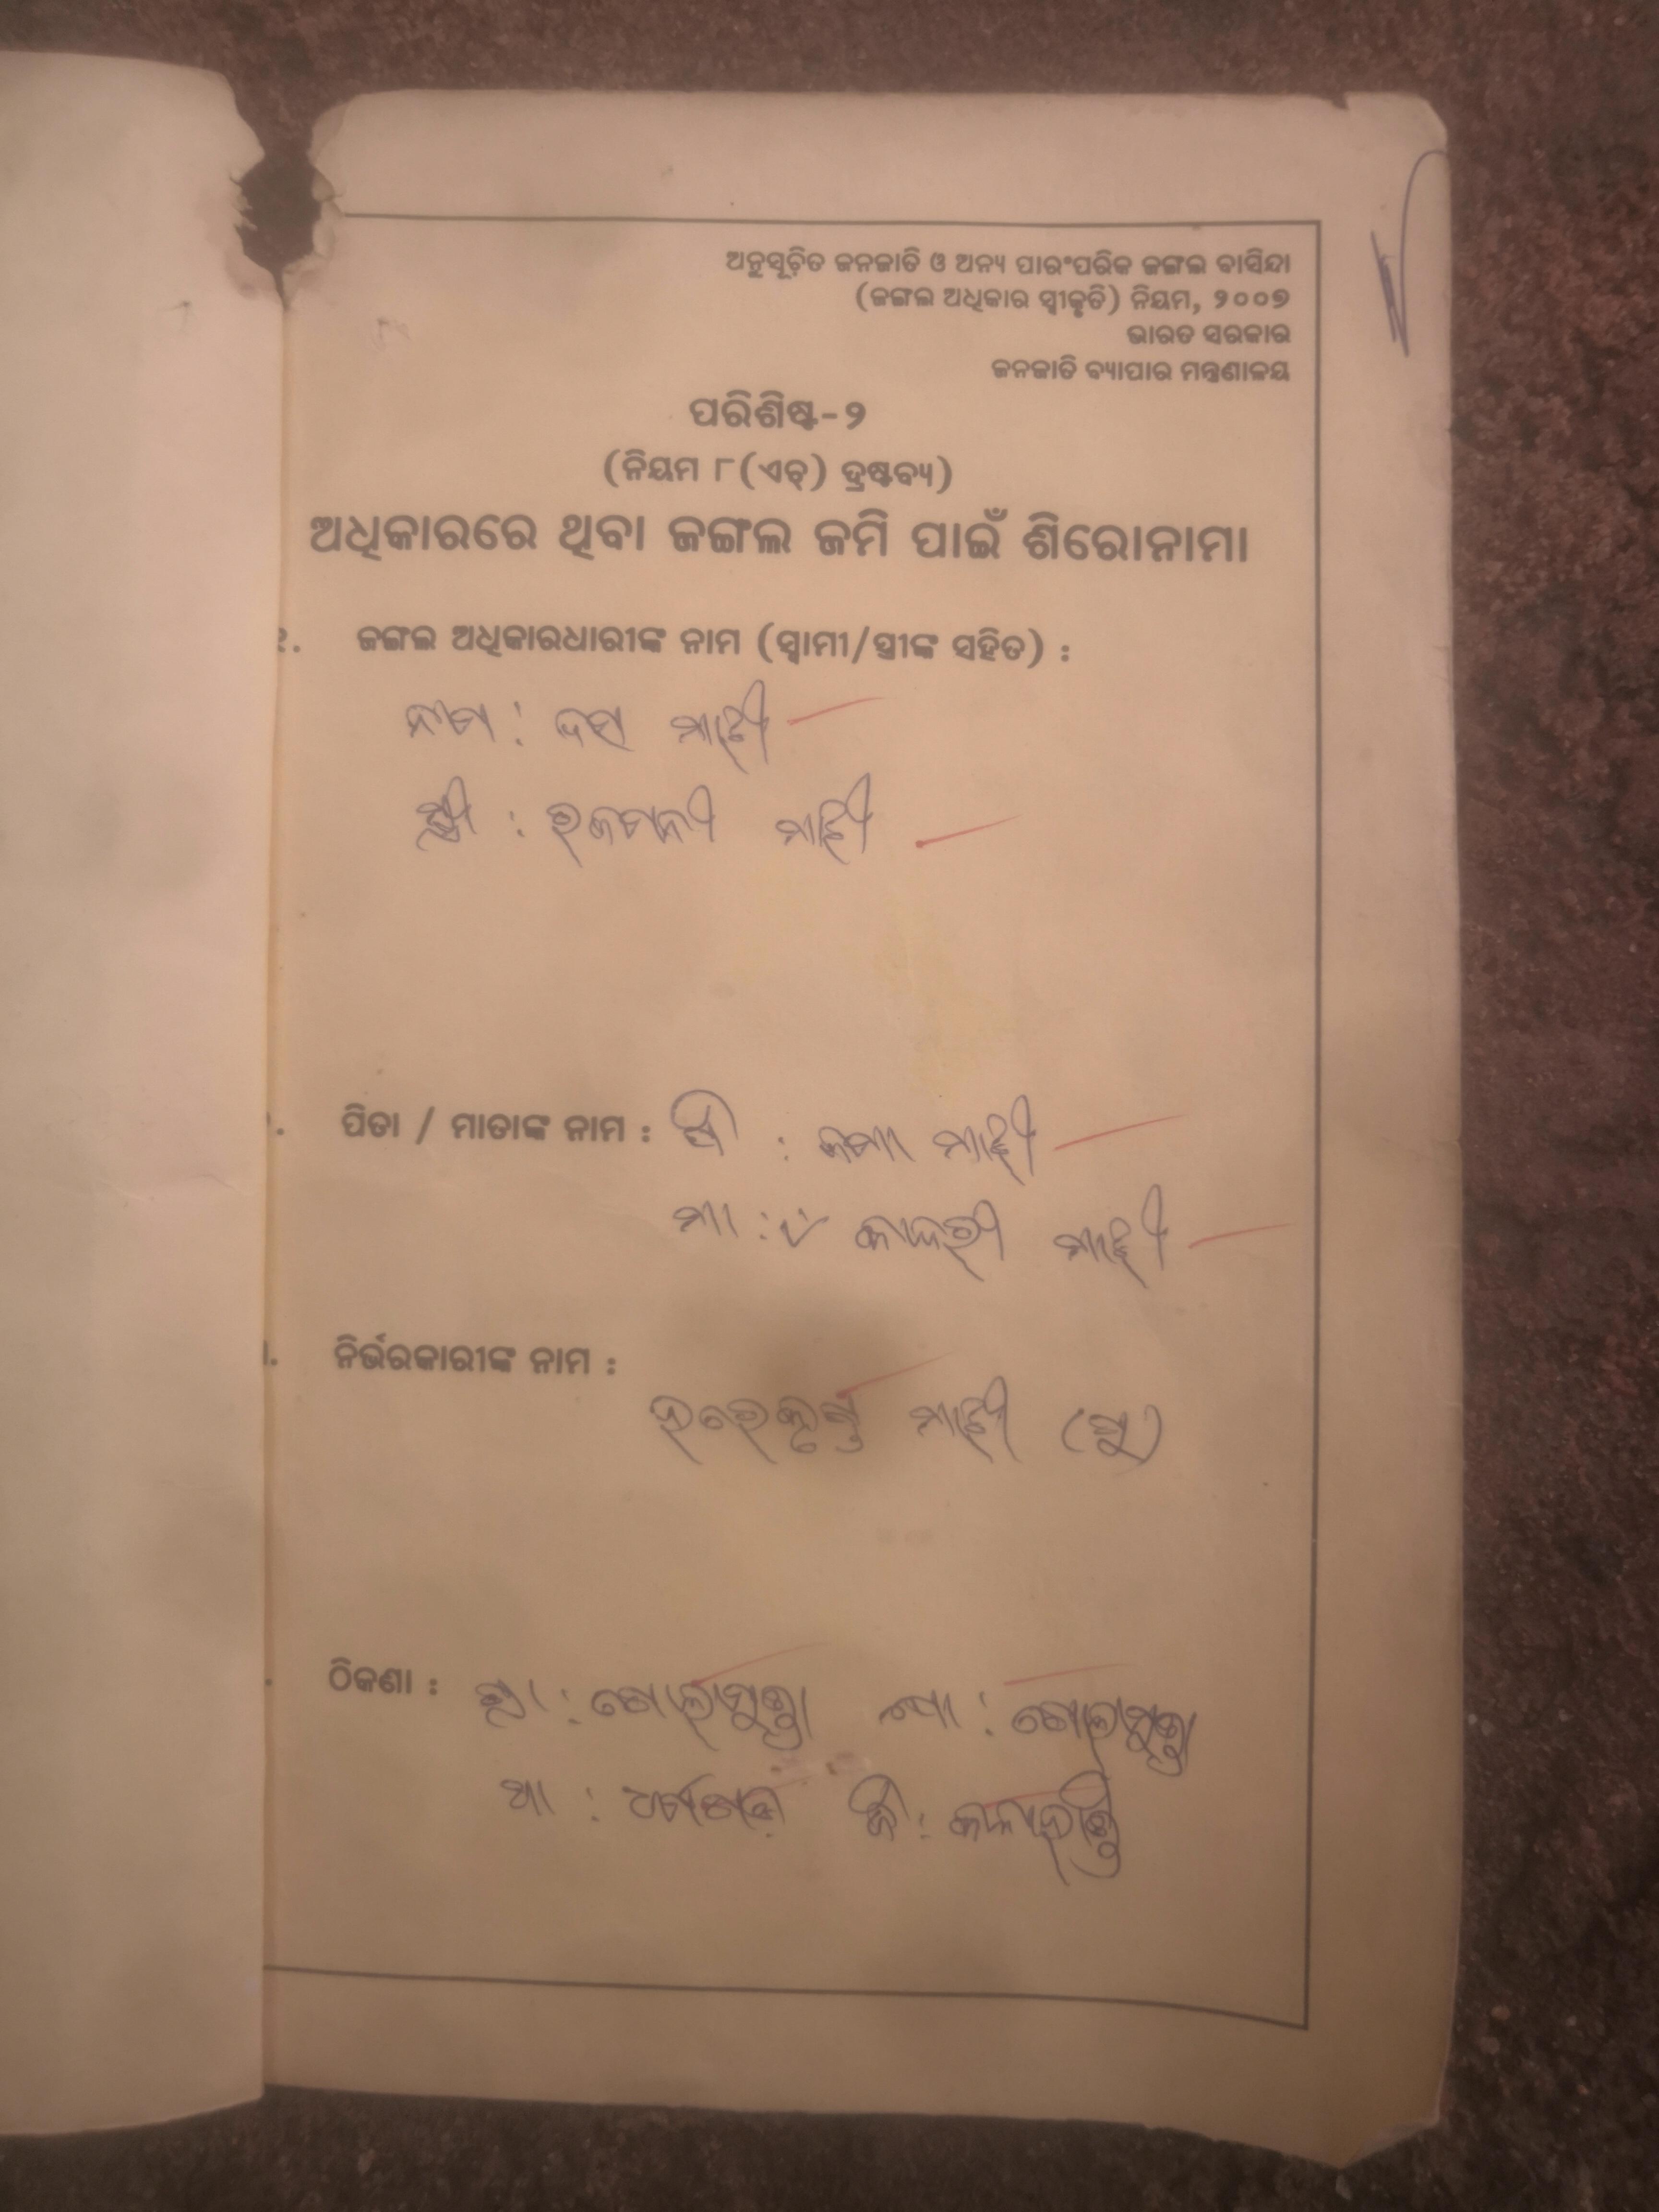 ଅନୁସୂଚିତ ଜନଜାତି ଓ ଅନ୍ୟ ପାରଂପରିକ ଜଙ୍ଗଲ ବାସିନ୍ଦା
(ଜଙ୍ଗଲ ଅଧିକାର ସ୍ୱୀକୃତି) ନିୟମ, ୨୦୦୭
ଭାରତ ସରକାର
ଜନଜାତି ବ୍ୟାପାର ମନ୍ତ୍ରଣାଳୟ
ପରିଶିଷ୍ଟ-୨
(ନିୟମ ୮(ଏଚ୍) ଦ୍ରଷ୍ଟବ୍ୟ)
ଅଧିକାରରେ ଥିବା ଜଙ୍ଗଲ ଜମି ପାଇଁ ଶିରୋନାମା
ଜଙ୍ଗଲ ଅଧିକାରଧାରୀଙ୍କ ନାମ (ସ୍ୱାମୀ/ସ୍ତ୍ରୀଙ୍କ ସହିତ) :
ନାମ : ଦସ ମାଝୀ
ସ୍ତ୍ରୀ : ମାଝୀ
ପିତା / ମାତାଙ୍କ ନାମ : ପି : ମାଝୀ
ମା : ମାଝୀ
ନିର୍ଭରକାରୀଙ୍କ ନାମ :
ହରେକୃଷ୍ଣ ମାଝୀ (ପୁ)
ଠିକଣା : ଗ୍ରା : ଗୋଲାମୁଣ୍ଡା ପୋ : ଗୋଲାମୁଣ୍ଡା
ଥା : ଧର୍ମଗଡ଼ ଜି : କଳାହାଣ୍ଡି